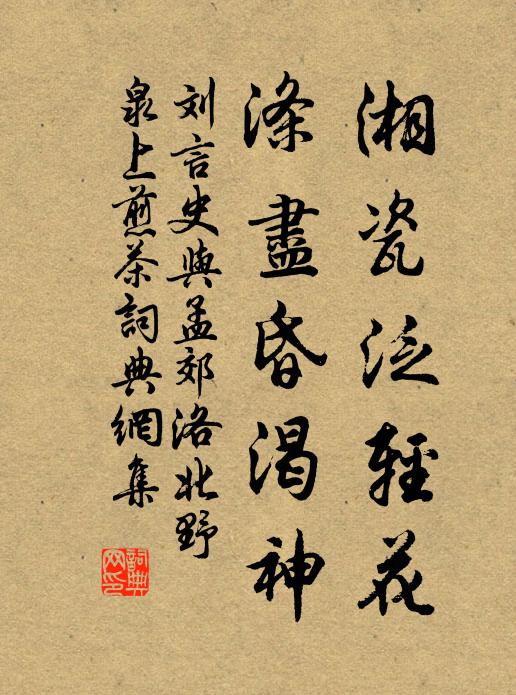 湘瓷泛轻花
涤盡昏渴神
刘言史與孟郊洛北野
泉上煎茶詞典網集
詞典网印